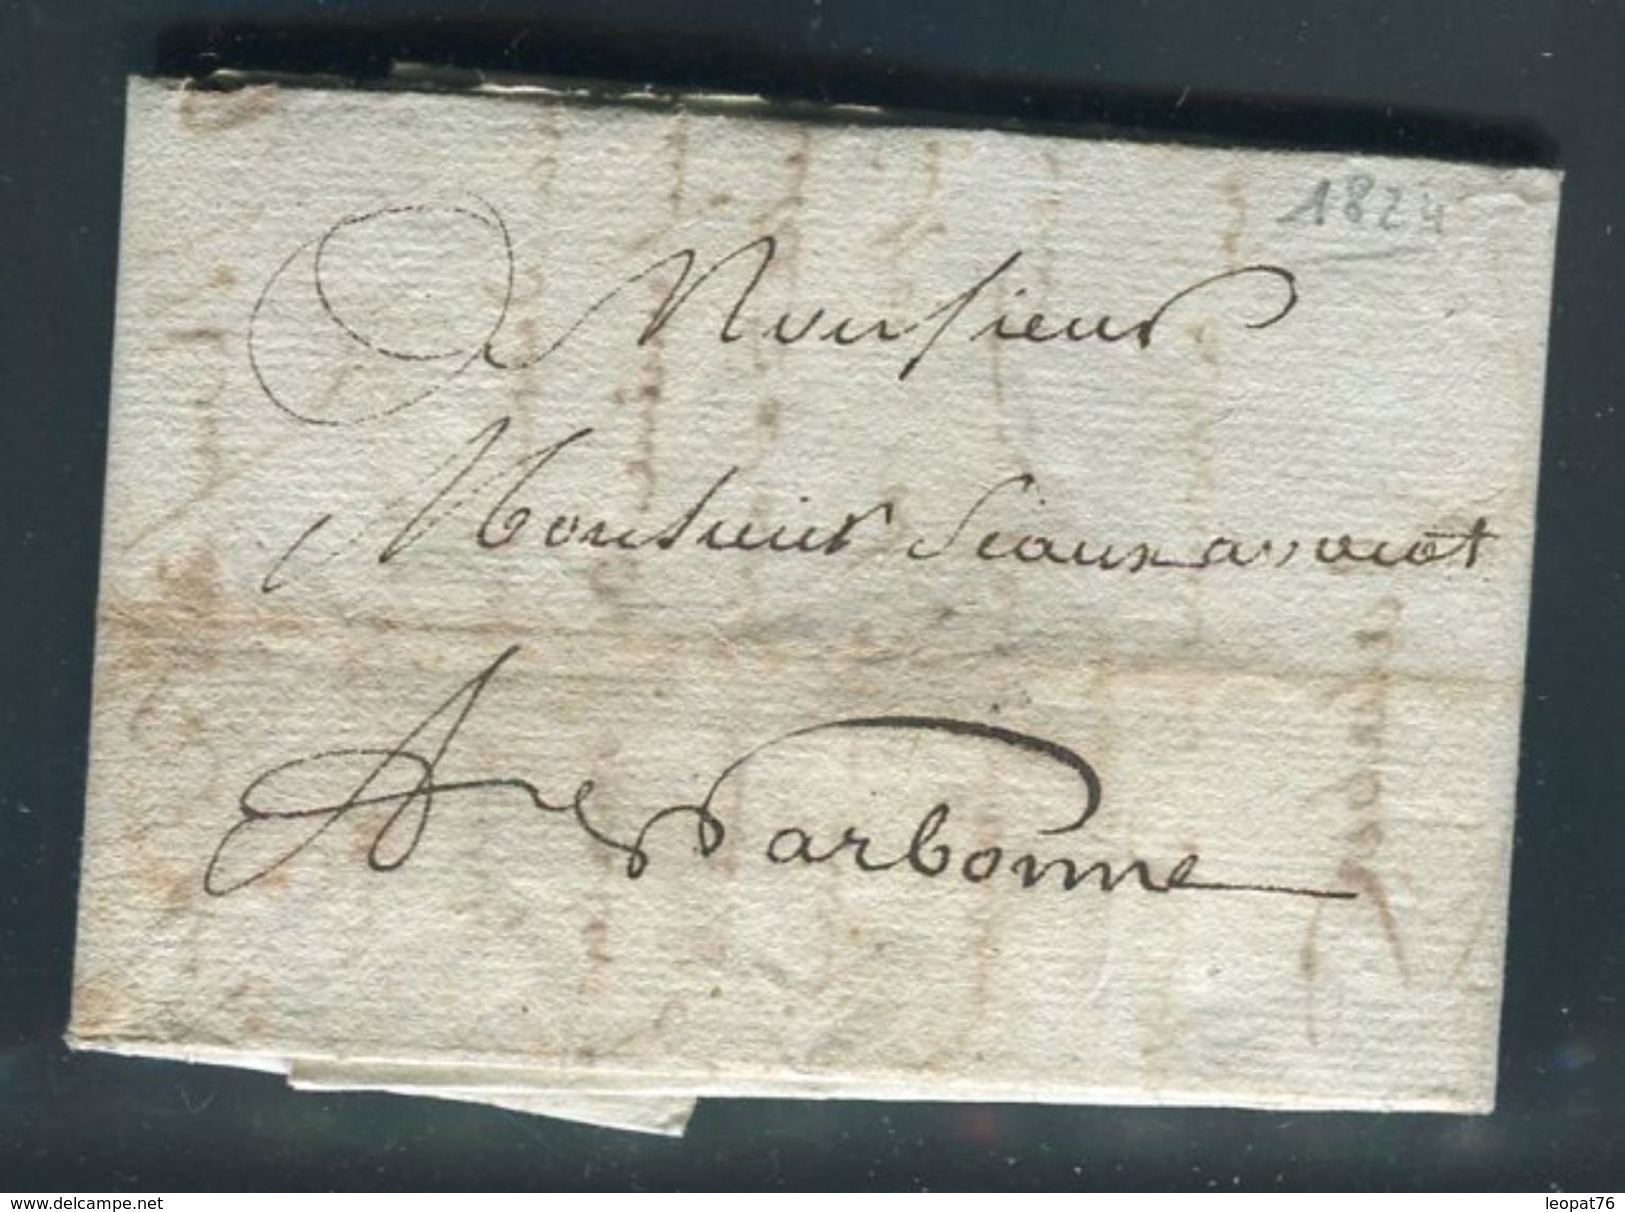 1824
Monsieur
Monsieur Sicaux avocat
A Narbonne
www.delcampe.net
leopat76